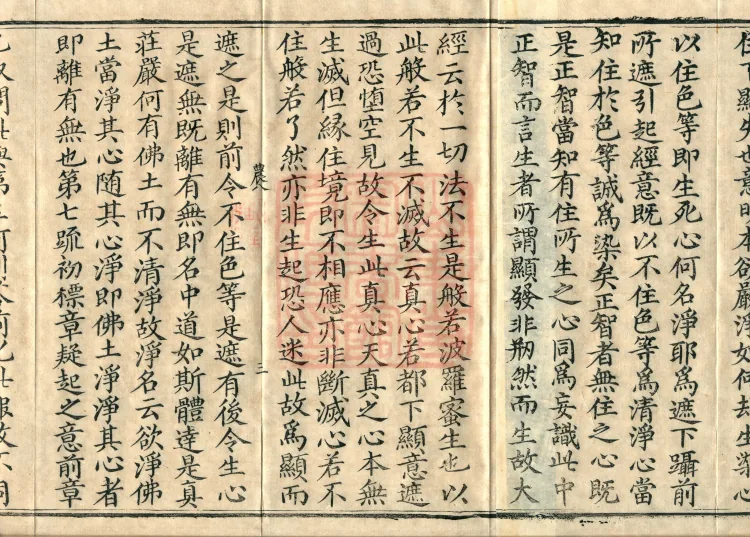 住下顯失也意曰本欲嚴淨如何却生染心
以住色等即生死心何名淨耶爲遮下躡前
所遮引起經意既以不住色等爲清淨心當
知住於色等誠爲染矣正智者無住之心既
是正智當知有住所生之心同爲妄識此中
正智而言生者所謂顯發非剏然而生故大
經云於一切法不生是般若波羅蜜生也以
此般若不生不滅故云真心若都下顯意遮
過恐堕空見故令生此真心天真之心本無
生滅但縁住境即不相應亦非斷滅心若不
住般若了然亦非生起恐人迷此故爲顯而
農 三
遮之是則前令不住色等是遮有後令生心
是遮無既離有無即名中道如斯體達是真
莊嚴何有佛土而不清淨故淨名云欲淨佛
土當淨其心隨其心淨即佛土淨淨其心者
即離有無也第七疏初標章疑起之意前章